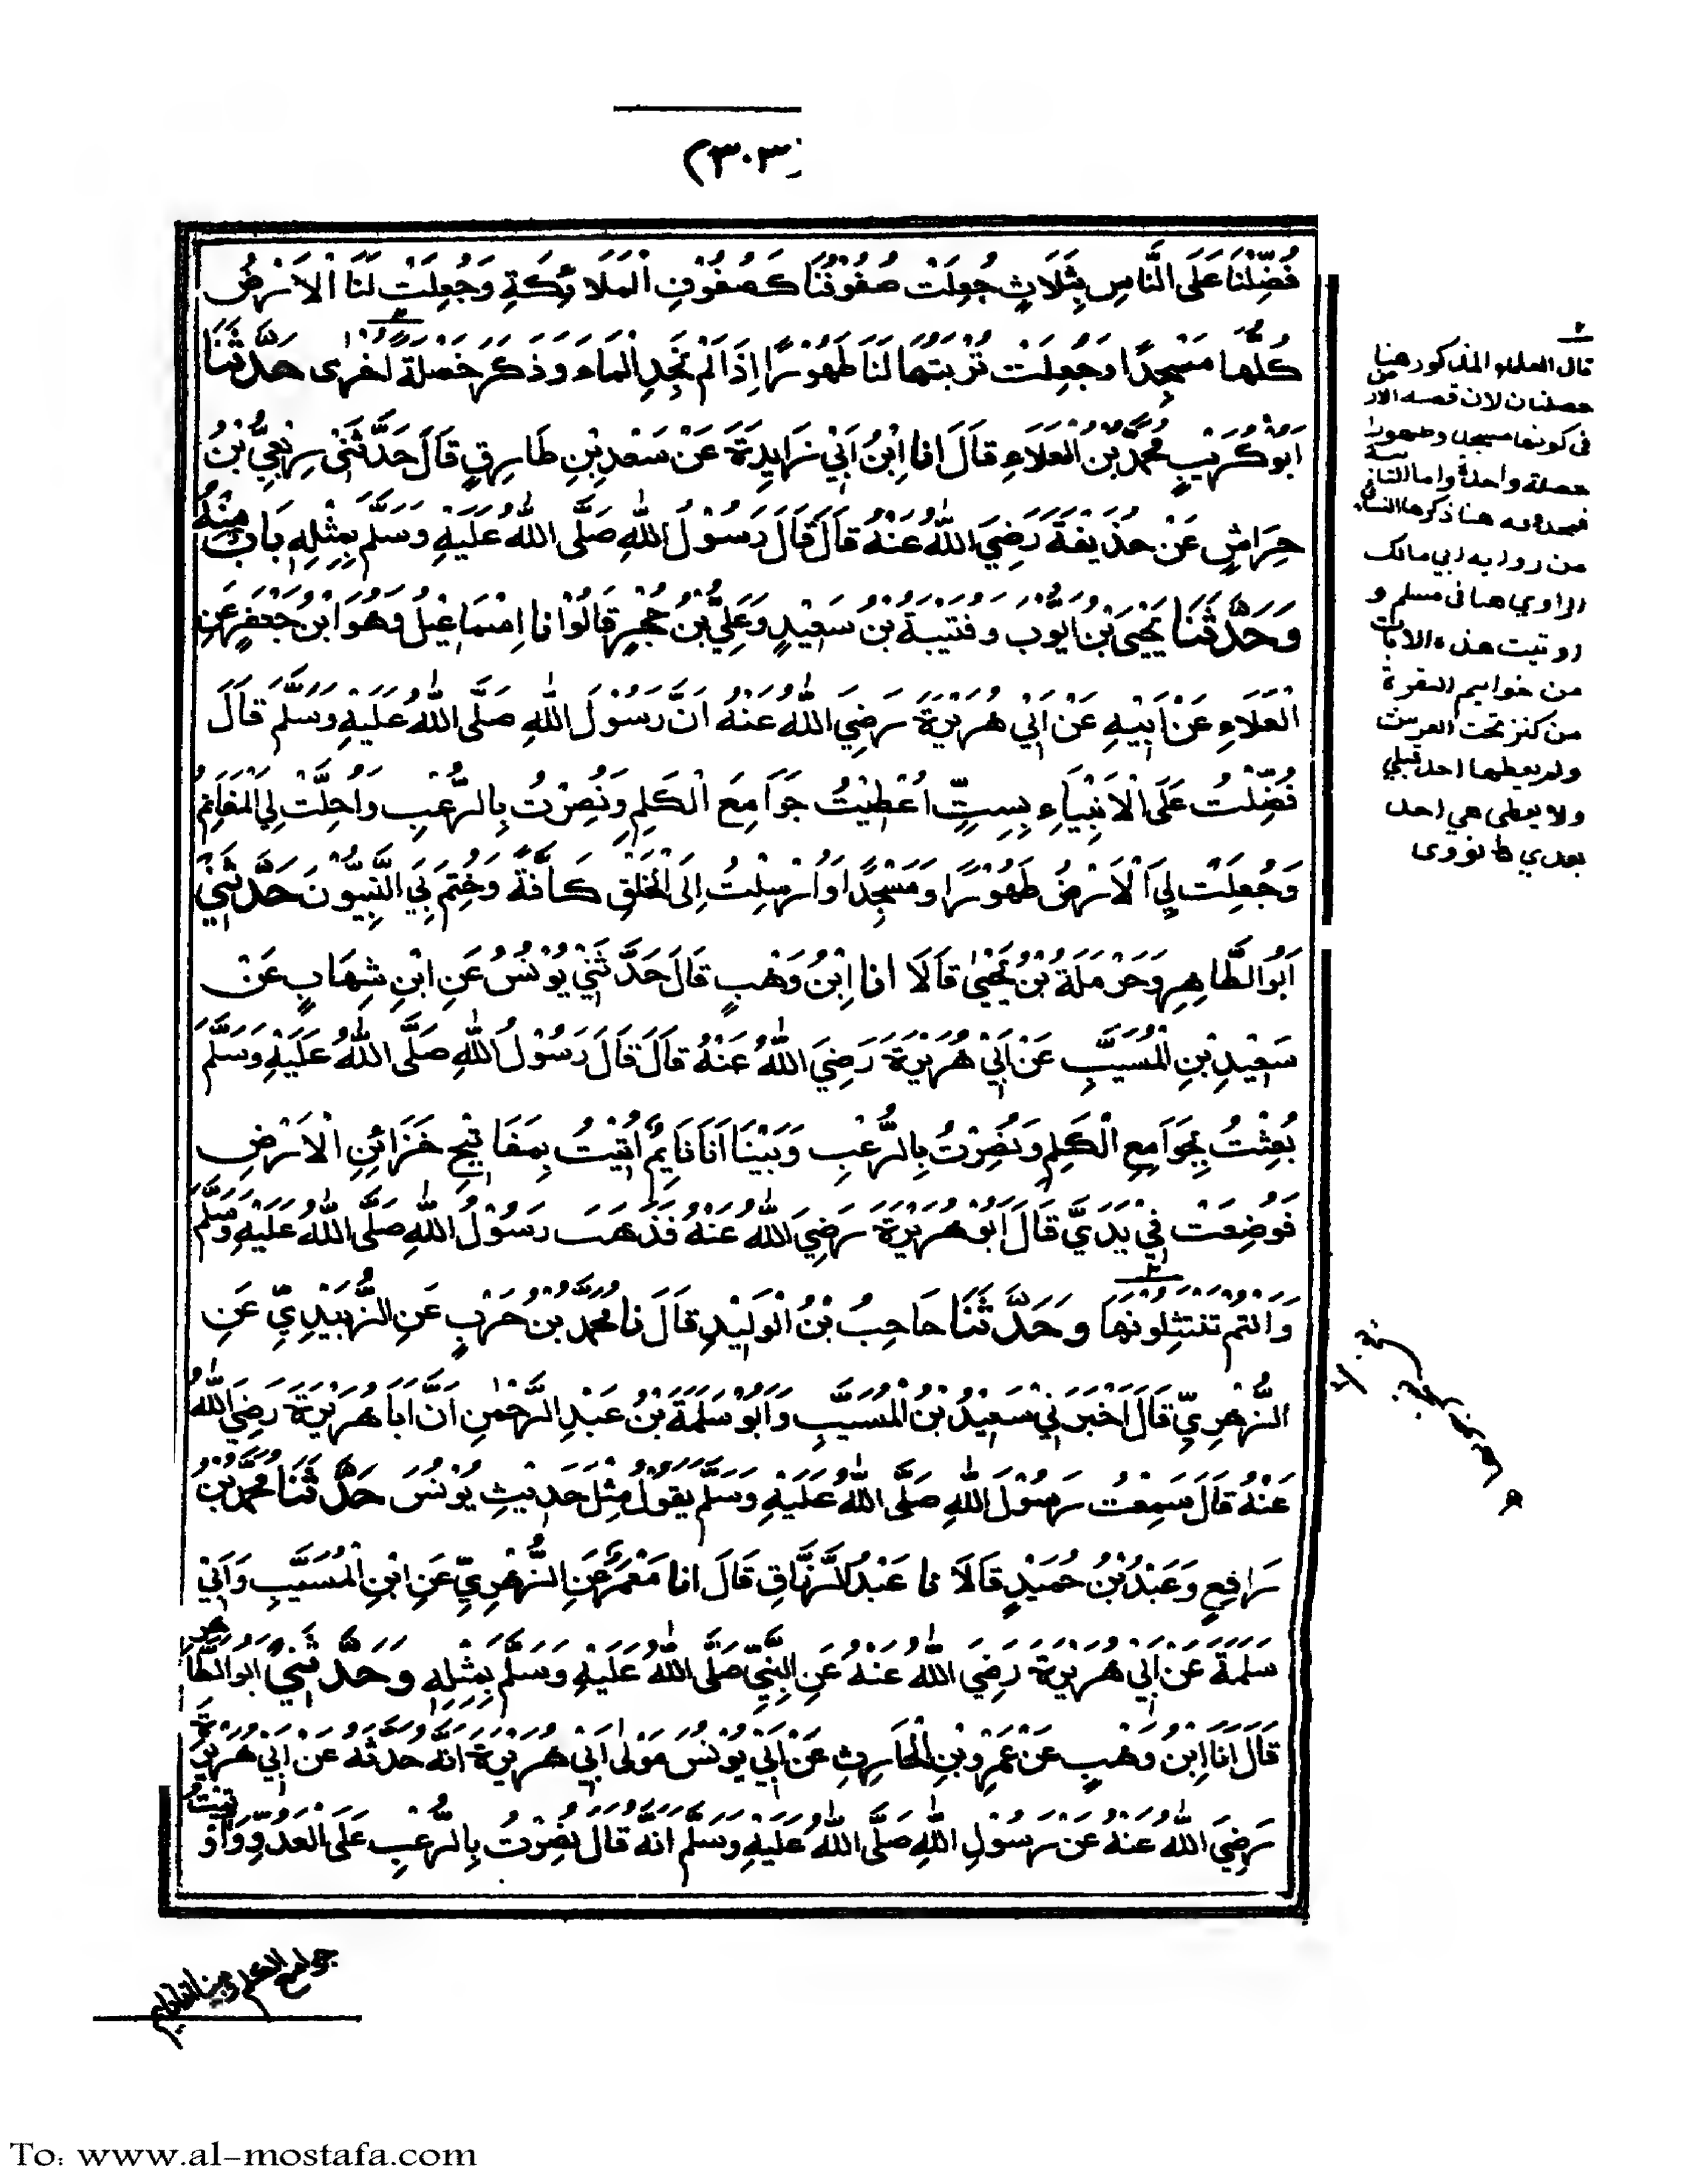 ٣٠٣
فُضِّلْنَا عَلَى النَّاسِ بِثَلَاثٍ جُعِلَتْ صُفُوْفُنَا كَصُفُوْفِ الْمَلَائِكَةِ وَجُعِلَتْ لَنَا الْاَرْضُ
كُلُّهَا مَسْجِدًا وَجُعِلَتْ تُرْبَتُهَا لَنَا طَهُوْرًا اِذَا لَمْ نَجِدِ الْمَاءَ وَذَكَرَ خَصْلَةً اُخْرٰى حَدَّثَنَا
اَبُوْ كُرَيْبٍ مُحَمَّدُ بْنُ الْعَلَاءِ قَالَ انا اِبْنُ اَبِيْ زَايِدَةَ عَنْ سَعْدِ بْنِ طَارِقٍ قَالَ حَدَّثَنِيْ رِبْعِيُّ بْنُ
حِرَاشٍ عَنْ حُذَيْفَةَ رَضِيَ اللّٰهُ عَنْهُ قَالَ قَالَ رَسُوْلُ اللّٰهِ صَلَّى اللّٰهُ عَلَيْهِ وَسَلَّمَ بِمِثْلِهِ بَابٌ مِنْهُ
وَحَدَّثَنَا يَحْيَى بْنُ اَيُّوْبَ وَقُتَيْبَةُ بْنُ سَعِيْدٍ وَعَلِيُّ بْنُ حُجْرٍ قَالُوْا نا اِسْمَاعِيْلُ وَهُوَ ابْنُ جَعْفَرٍ عَنِ
الْعَلَاءِ عَنْ اَبِيْهِ عَنْ اَبِيْ هُرَيْرَةَ رَضِيَ اللّٰهُ عَنْهُ اَنَّ رَسُوْلَ اللّٰهِ صَلَّى اللّٰهُ عَلَيْهِ وَسَلَّمَ قَالَ
فُضِّلْتُ عَلَى الْاَنْبِيَاءِ بِسِتٍّ اُعْطِيْتُ جَوَامِعَ الْكَلِمِ وَنُصِرْتُ بِالرُّعْبِ وَاُحِلَّتْ لِيَ الْمَغَانِمُ
وَجُعِلَتْ لِيَ الْاَرْضُ طَهُوْرًا وَمَسْجِدًا وَاُرْسِلْتُ اِلَى الْخَلْقِ كَافَّةً وَخُتِمَ بِيَ النَّبِيُّوْنَ حَدَّثَنِيْ
اَبُو الطَّاهِرِ وَحَرْمَلَةُ بْنُ يَحْيٰى قَالَا انا اِبْنُ وَهْبٍ قَالَ حَدَّثَنِيْ يُوْنُسُ عَنِ ابْنِ شِهَابٍ عَنْ
سَعِيْدِ بْنِ الْمُسَيَّبِ عَنْ اَبِيْ هُرَيْرَةَ رَضِيَ اللّٰهُ عَنْهُ قَالَ قَالَ رَسُوْلُ اللّٰهِ صَلَّى اللّٰهُ عَلَيْهِ وَسَلَّمَ
بُعِثْتُ بِجَوَامِعِ الْكَلِمِ وَنُصِرْتُ بِالرُّعْبِ وَبَيْنَا اَنَا نَايِمٌ اُتِيْتُ بِمَفَاتِيْحِ خَزَائِنِ الْاَرْضِ
فَوُضِعَتْ فِيْ يَدَيَّ قَالَ اَبُوْ هُرَيْرَةَ رَضِيَ اللّٰهُ عَنْهُ فَذَهَبَ رَسُوْلُ اللّٰهِ صَلَّى اللّٰهُ عَلَيْهِ وَسَلَّمَ
وَاَنْتُمْ تَنْتَثِلُوْنَهَا وَحَدَّثَنَا حَاجِبُ بْنُ الْوَلِيْدِ قَالَ نا مُحَمَّدُ بْنُ حَرْبٍ عَنِ الزُّبَيْدِيِّ عَنِ
الزُّهْرِيِّ قَالَ اَخْبَرَنِيْ سَعِيْدُ بْنُ الْمُسَيَّبِ وَاَبُوْ سَلَمَةَ بْنُ عَبْدِ الرَّحْمٰنِ اَنَّ اَبَا هُرَيْرَةَ رَضِيَ اللّٰهُ
عَنْهُ قَالَ سَمِعْتُ رَسُوْلَ اللّٰهِ صَلَّى اللّٰهُ عَلَيْهِ وَسَلَّمَ يَقُوْلُ مِثْلَ حَدِيْثِ يُوْنُسَ حَدَّثَنَا مُحَمَّدُ بْنُ
رَافِعٍ وَعَبْدُ بْنُ حُمَيْدٍ قَالَا نا عَبْدُ الرَّزَّاقِ قَالَ انا مَعْمَرٌ عَنِ الزُّهْرِيِّ عَنِ ابْنِ الْمُسَيَّبِ وَاَبِيْ
سَلَمَةَ عَنْ اَبِيْ هُرَيْرَةَ رَضِيَ اللّٰهُ عَنْهُ عَنِ النَّبِيِّ صَلَّى اللّٰهُ عَلَيْهِ وَسَلَّمَ بِمِثْلِهِ وَحَدَّثَنِيْ اَبُو الطَّاهِرِ
قَالَ انا اِبْنُ وَهْبٍ عَنْ عَمْرِو بْنِ الْحَارِثِ عَنْ اَبِيْ يُوْنُسَ مَوْلٰى اَبِيْ هُرَيْرَةَ اَنَّهُ حَدَّثَهُ عَنْ اَبِيْ هُرَيْرَةَ
رَضِيَ اللّٰهُ عَنْهُ عَنْ رَسُوْلِ اللّٰهِ صَلَّى اللّٰهُ عَلَيْهِ وَسَلَّمَ اَنَّهُ قَالَ نُصِرْتُ بِالرُّعْبِ عَلَى الْعَدُوِّ وَاُوْتِيْتُ
قال العلماء المذكور هنا
خصلتان لان قصة الارض
فى كونها مسجدا وطهورا
خصلة واحدة واما الثالثة
هنا ذكرها النسائى
من رواية ابي مالك
الراوي هنا فى مسلم و
اوتيت هذه الايات
من خواتيم البقرة
من كنز تحت العرش
ولم يعطها احد قبلي
ولا يعطى هن احد
بعدي ط نووى
جوامع الكلم وبينا انا نايم
To: www.al-mostafa.com